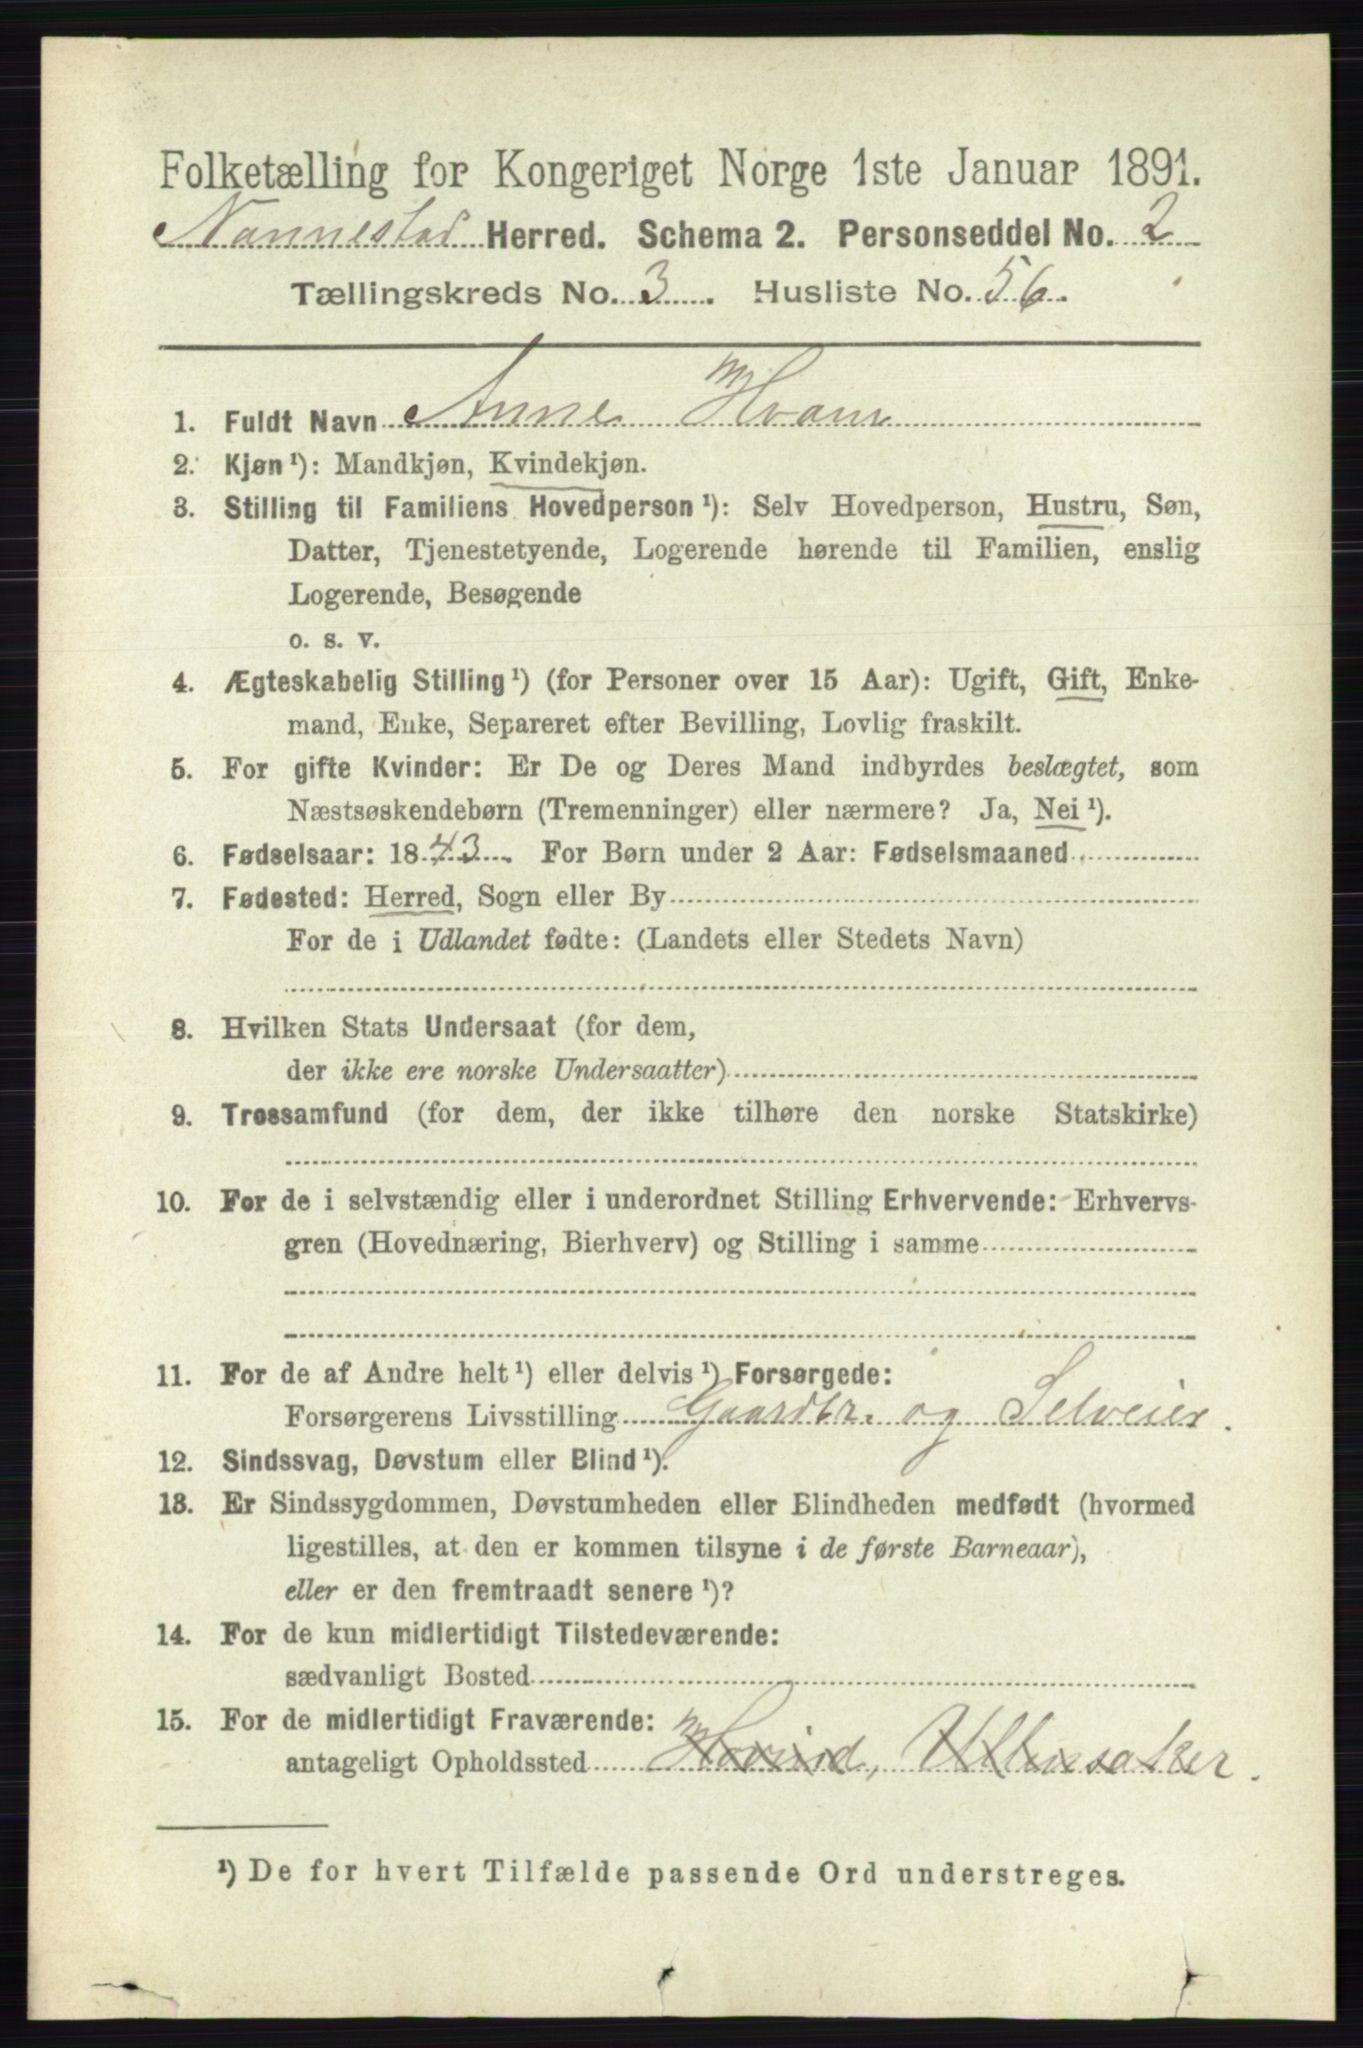 Folketælling for Kongeriget Norge 1ste Januar 1891.
Nannestad Herred. Schema 2. Personseddel No. 2
Tællingskreds No. 3. Husliste No. 56.
1. Fuldt Navn Anne Hvam
2. Kjøn ¹): Mandkjøn, Kvindekjøn.
3. Stilling til Familiens Hovedperson ¹): Selv Hovedperson, Hustru, Søn,
Datter, Tjenestetyende, Logerende hørende til Familien, enslig
Logerende, Besøgende
o. s. v.
4. Ægteskabelig Stilling ¹) (for Personer over 15 Aar): Ugift, Gift, Enke-
mand, Enke, Separeret efter Bevilling, Lovlig fraskilt.
5. For gifte Kvinder: Er De og Deres Mand indbyrdes beslægtet, som
Næstsøskendebørn (Tremenninger) eller nærmere? Ja, Nei ¹).
6. Fødselsaar: 1843. For Børn under 2 Aar: Fødselsmaaned
7. Fødested: Herred, Sogn eller By
For de i Udlandet fødte: (Landets eller Stedets Navn)
8. Hvilken Stats Undersaat (for dem,
der ikke ere norske Undersaatter)
9. Trossamfund (for dem, der ikke tilhøre den norske Statskirke)
10. For de i selvstændig eller i underordnet Stilling Erhvervende: Erhvervs-
gren (Hovednæring, Bierhverv) og Stilling i samme
11. For de af Andre helt ¹) eller delvis ¹) Forsørgede:
Forsørgerens Livsstilling Gaardbr. og Selveier.
12. Sindssvag, Døvstum eller Blind ¹).
13. Er Sindssygdommen, Døvstumheden eller Blindheden medfødt (hvormed
ligestilles, at den er kommen tilsyne i de første Barneaar),
eller er den fremtraadt senere ¹)?
14. For de kun midlertidigt Tilstedeværende:
sædvanligt Bosted
15. For de midlertidigt Fraværende:
antageligt Opholdssted Hovind, Ullensaker.
¹) De for hvert Tilfælde passende Ord understreges.